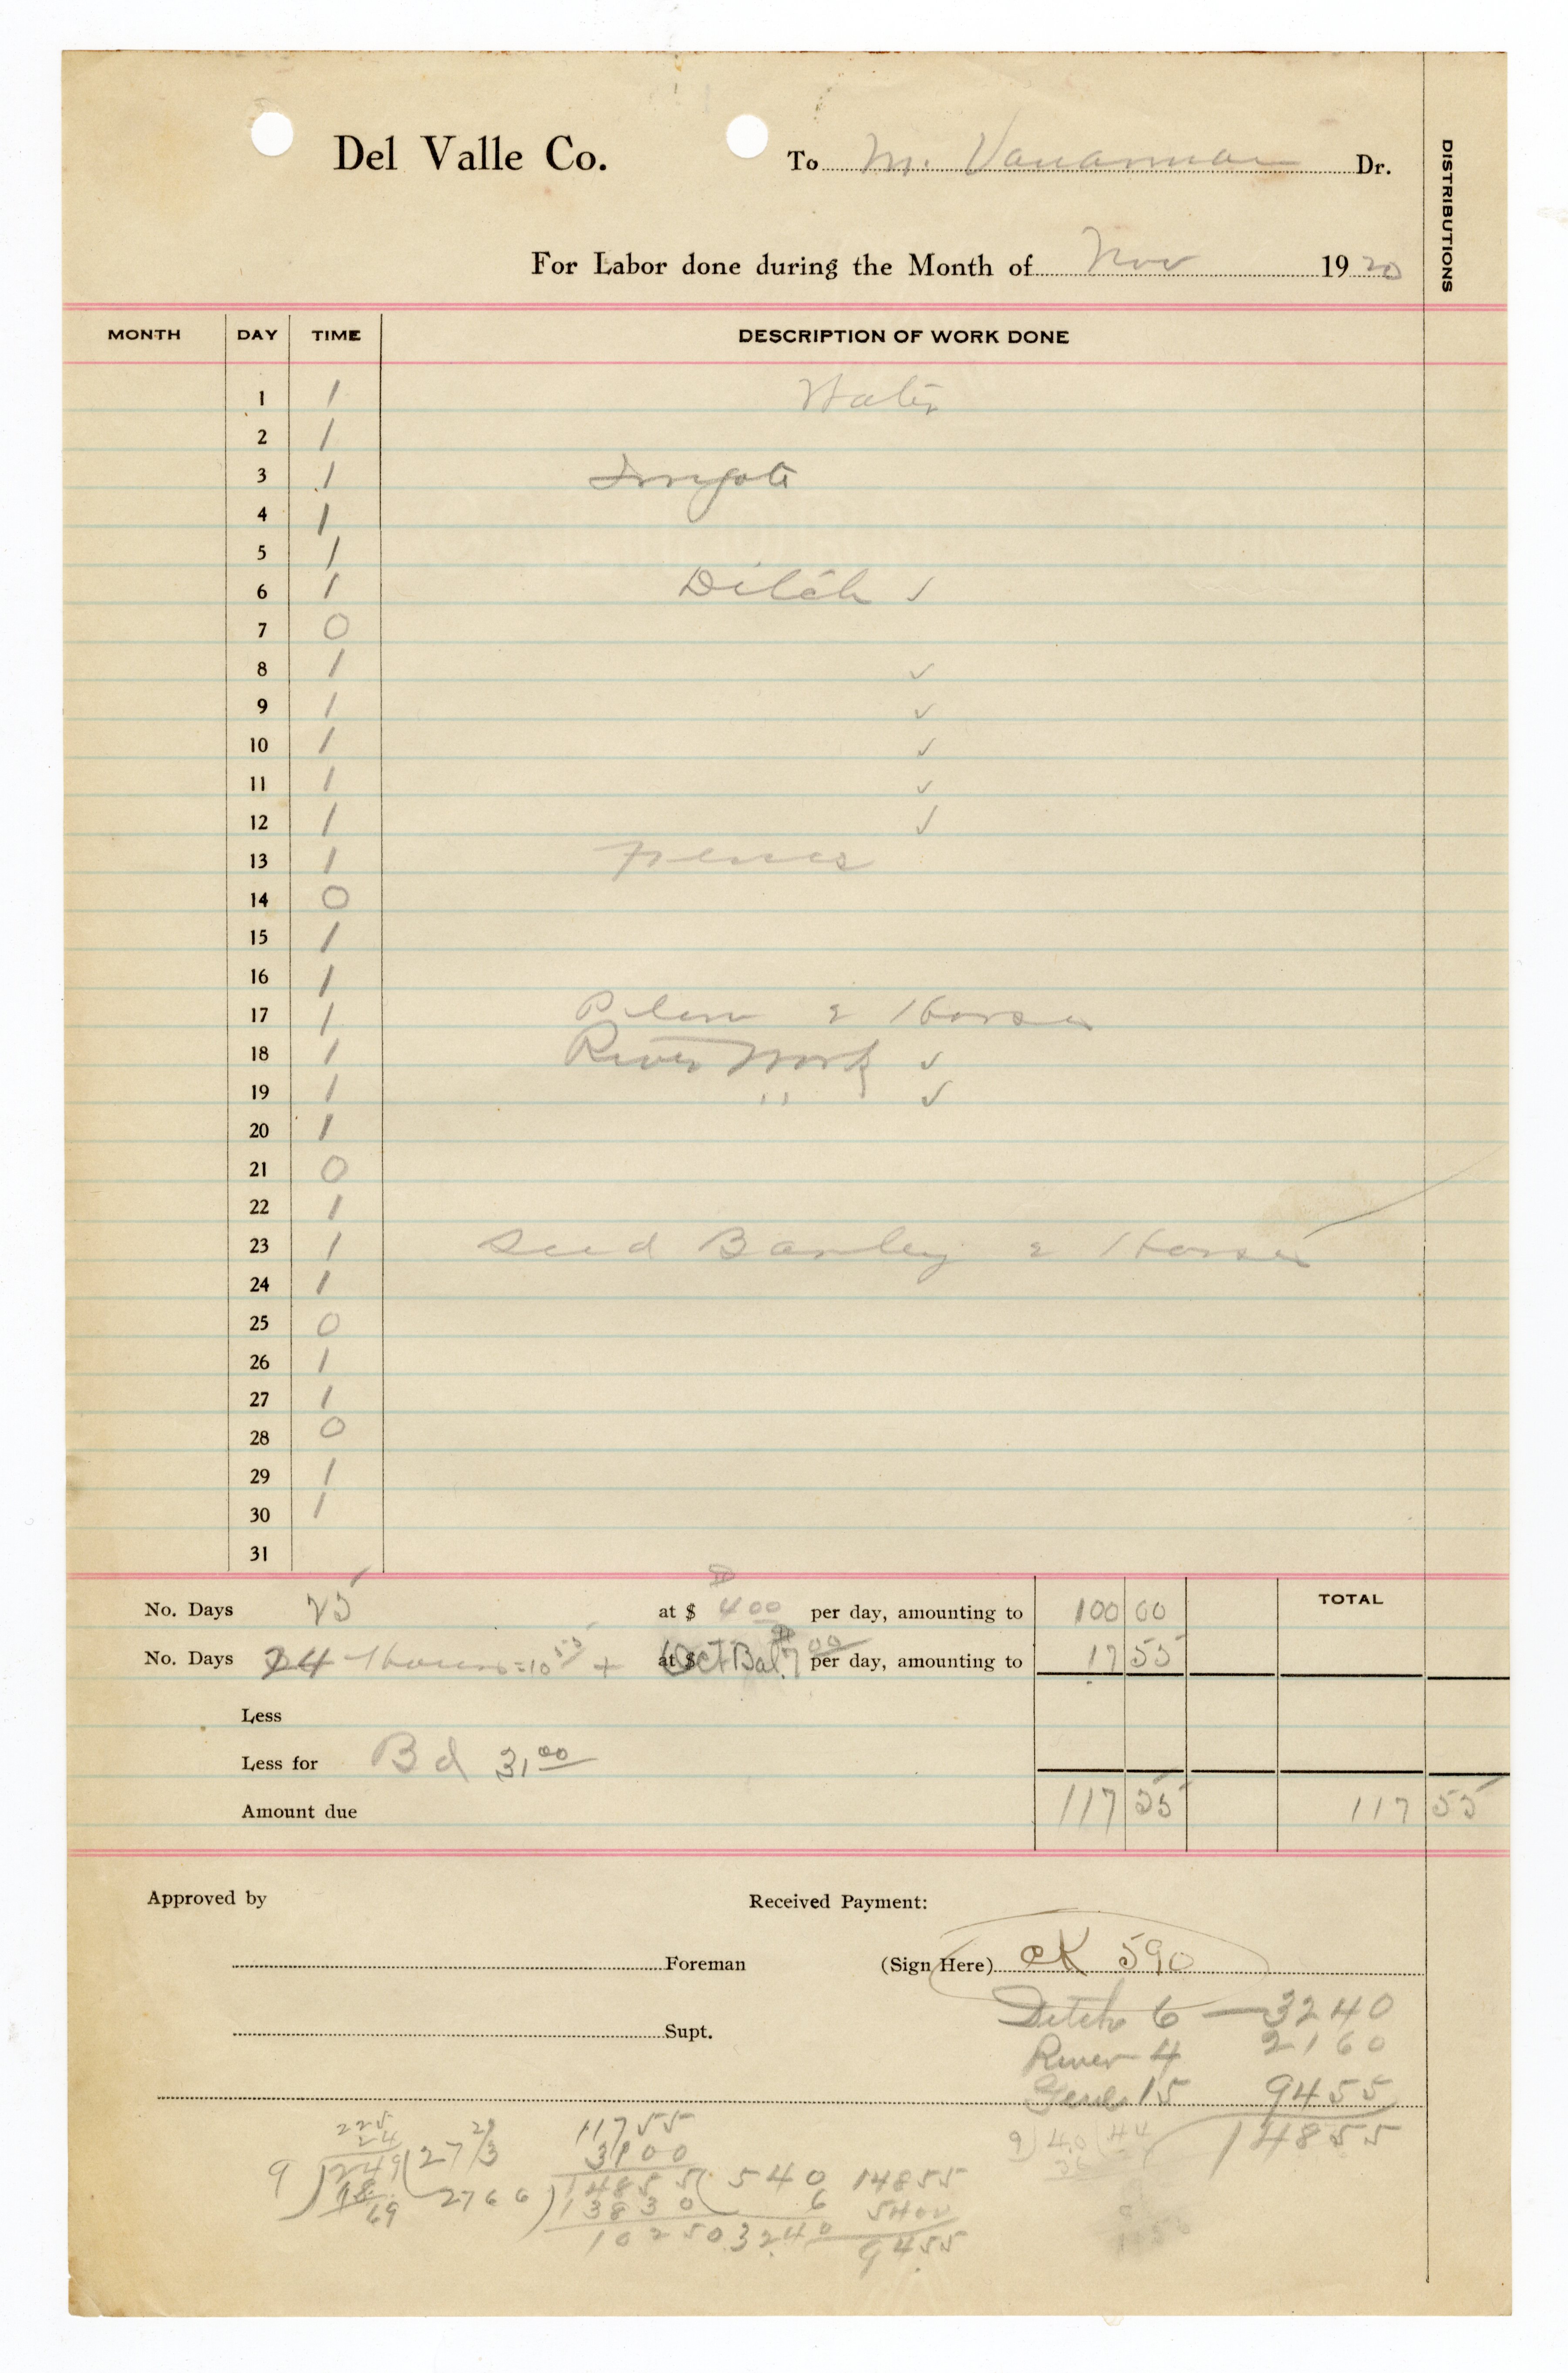 Del Valle Co. To M. Vanamman Dr.
DISTRIBUTIONS
For Labor done during the Month of Nov 1920
MONTH DAY TIME DESCRIPTION OF WORK DONE
1 1 Water
2 1
3 1 Irrigate
4 1
5 1
6 1 Ditch ✓
7 0
8 1 ✓
9 1 ✓
10 1 ✓
11 1 ✓
12 1 ✓
13 1 Fences
14 0
15 1
16 1
17 1 Plow 2 Horses
18 1 River Work ✓
19 1 " ✓
20 1
21 0
22 1
23 1 Seed Barley 2 Horses
24 1
25 0
26 1
27 1
28 0
29 1
30 1
31
No. Days 25 at $ 4 00 per day, amounting to 100 00 TOTAL
No. Days 24 Hours = 10 55 + at $ Oct Bal. 7 00 per day, amounting to 17 55
Less
Less for Bd 31 00
Amount due 117 55 117 55
Approved by Received Payment:
Foreman (Sign Here) cK 590
Ditch 6 — 3240
Supt.
River 4 2160
Genl 15 9455
14855
225
24
9) 249 (27 2/3
18
69
11755
3100
2766) 14855 (540
13830
10250
6
3240
14855
5400
9455
9) 40 (44
36